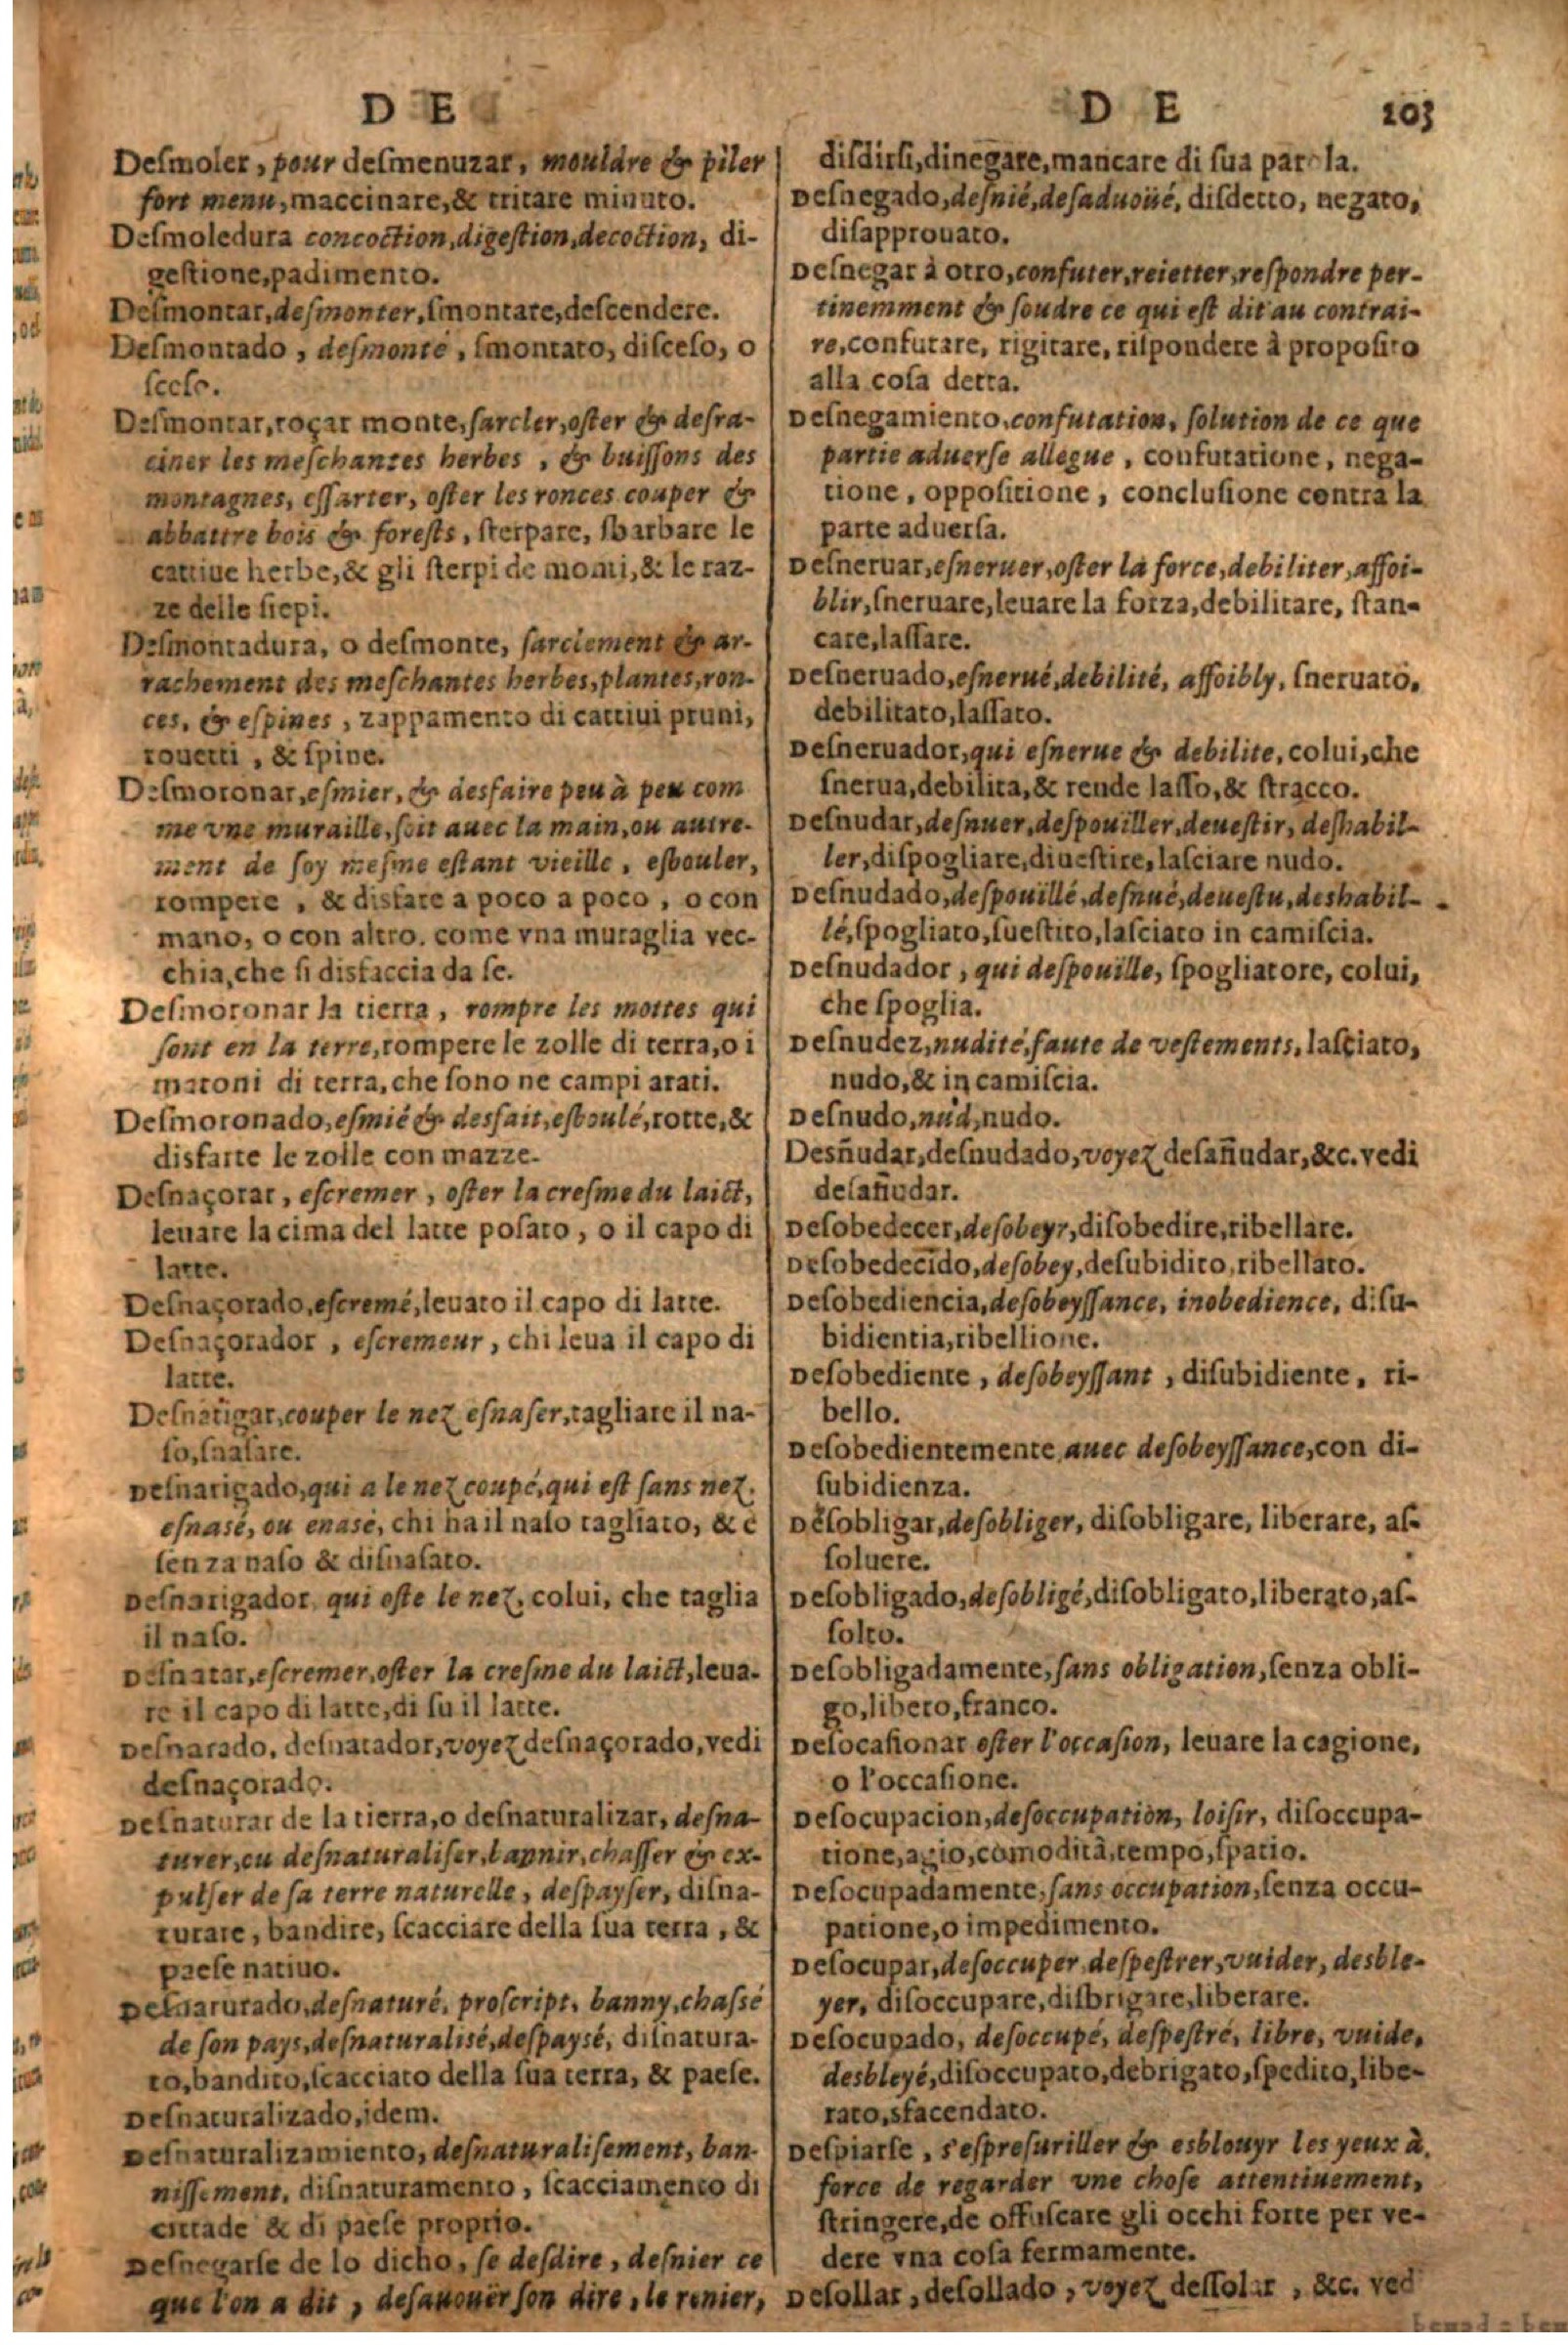 D E
Deſmoler, pour deſmenuzar, mouldre & piler
fort menu, maccinare, & tritare minuto.
Deſmoledura concoction, digeſtion, decoction, di-
geſtione, padimento.
Deſmontar, deſmonter, ſmontare, deſcendere.
Deſmontado, deſmonté, ſmontato, diſceſo, o
ſceſo.
Deſmontar, roçar monte, ſarcler, oſter & deſra-
ciner les meſchantes herbes, & buiſſons des
montagnes, eſſarter, oſter les ronces couper &
abbattre bois & foreſts, ſterpare, ſbarbare le
cattiue herbe, & gli ſterpi de monti, & le raz-
ze delle ſiepi.
Deſmontadura, o deſmonte, ſarclement & ar-
rachement des meſchantes herbes, plantes, ron-
ces, & eſpines, zappamento di cattiui pruni,
rouetti, & ſpine.
Deſmoronar, eſmier, & desfaire peu à peu com
me vne muraille, ſoit auec la main, ou autre-
ment de ſoy meſme eſtant vieille, esbouler,
rompere, & disfare a poco a poco, o con
mano, o con altro. come vna muraglia vec-
chia, che ſi disfaccia da ſe.
Deſmoronar la tierra, rompre les mottes qui
ſont en la terre, rompere le zolle di terra, o i
matoni di terra, che ſono ne campi arati.
Deſmoronado, eſmié & desfait, esboulé, rotte, &
disfatte le zolle con mazze.
Deſnaçorar, eſcremer, oſter la creſme du laict,
leuare la cima del latte poſato, o il capo di
latte.
Deſnaçorado, eſcremé, leuato il capo di latte.
Deſnaçorador, eſcremeur, chi leua il capo di
latte.
Deſnarigar, couper le nez eſnaſer, tagliare il na-
ſo, ſnaſare.
Deſnarigado, qui a le nez coupé, qui eſt ſans nez,
eſnasé, ou enasé, chi ha il naſo tagliato, & è
ſenza naſo & diſnaſato.
Deſnarigador, qui oſte le nez, colui, che taglia
il naſo.
Deſnatar, eſcremer, oſter la creſme du laict, leua-
re il capo di latte, di ſu il latte.
Deſnatado, deſnatador, voyez deſnaçorado, vedi
deſnaçorado.
Deſnaturar de la tierra, o deſnaturalizar, deſna-
turer, ou deſnaturaliſer, bannir, chaſſer & ex-
pulſer de ſa terre naturelle, deſpayſer, diſna-
turare, bandire, ſcacciare della ſua terra, &
paeſe natiuo.
Deſnaturado, deſnaturé, proſcript, banny, chaſsé
de ſon pays, deſnaturalisé, deſpaysé, diſnatura-
to, bandito, ſcacciato della ſua terra, & paeſe.
Deſnaturalizado, idem.
Deſnaturalizamiento, deſnaturaliſement, ban-
niſſement, diſnaturamento, ſcacciamento di
cittade & di paeſe proprio.
Deſnegarſe de lo dicho, ſe deſdire, deſnier ce
que l'on a dit, deſauouër ſon dire, le renier,
D E 103
diſdirſi, dinegare, mancare di ſua parola.
Deſnegado, deſnié, deſaduoüé, diſdetto, negato,
diſapprouato.
Deſnegar à otro, confuter, reietter, reſpondre per-
tinemment & ſoudre ce qui eſt dit au contrai-
re, confutare, rigitare, riſpondere à propoſito
alla coſa detta.
Deſnegamiento, confutation, ſolution de ce que
partie aduerſe allegue, confutatione, nega-
tione, oppoſitione, concluſione contra la
parte aduerſa.
Deſneruar, eſneruer, oſter la force, debiliter, affoi-
blir, ſneruare, leuare la forza, debilitare, ſtan-
care, laſſare.
Deſneruado, eſnerué, debilité, affoibly, ſneruato,
debilitato, laſſato.
Deſneruador, qui eſnerue & debilite, colui, che
ſnerua, debilita, & rende laſſo, & ſtracco.
Deſnudar, deſnuer, deſpouiller, deueſtir, deshabil-
ler, diſpogliare, diueſtire, laſciare nudo.
Deſnudado, deſpouillé, deſnué, deueſtu, deshabil-
lé, ſpogliato, ſueſtito, laſciato in camiſcia.
Deſnudador, qui deſpouille, ſpogliatore, colui,
che ſpoglia.
Deſnudez, nudité, faute de veſtements, laſciato,
nudo, & in camiſcia.
Deſnudo, nud, nudo.
Desñudar, deſnudado, voyez deſañudar, &c. vedi
deſañudar.
Deſobedecer, deſobeyr, diſobedire, ribellare.
Deſobedecido, deſobey, deſubidito, ribellato.
Deſobediencia, deſobeyſſance, inobedience, diſu-
bidientia, ribellione.
Deſobediente, deſobeyſſant, diſubidiente, ri-
bello.
Deſobedientemente, auec deſobeyſſance, con di-
ſubidienza.
Deſobligar, deſobliger, diſobligare, liberare, aſ-
ſoluere.
Deſobligado, deſobligé, diſobligato, liberato, aſ-
ſolto.
Deſobligadamente, ſans obligation, ſenza obli-
go, libero, franco.
Deſocaſionar oſter l'occaſion, leuare la cagione,
o l'occaſione.
Deſocupacion, deſoccupation, loiſir, diſoccupa-
tione, agio, comodità, tempo, ſpatio.
Deſocupadamente, ſans occupation, ſenza occu-
patione, o impedimento.
Deſocupar, deſoccuper, deſpeſtrer, vuider, desble-
yer, diſoccupare, diſbrigare, liberare.
Deſocupado, deſoccupé, deſpeſtré, libre, vuide,
desbleyé, diſoccupato, debrigato, ſpedito, libe-
rato, sfacendato.
Deſpiarſe, s'eſpreſuriller & esblouyr les yeux à
force de regarder vne choſe attentiuement,
ſtringere, de offuſcare gli occhi forte per ve-
dere vna coſa fermamente.
Deſollar, deſollado, voyez deſſolar, &c. ved